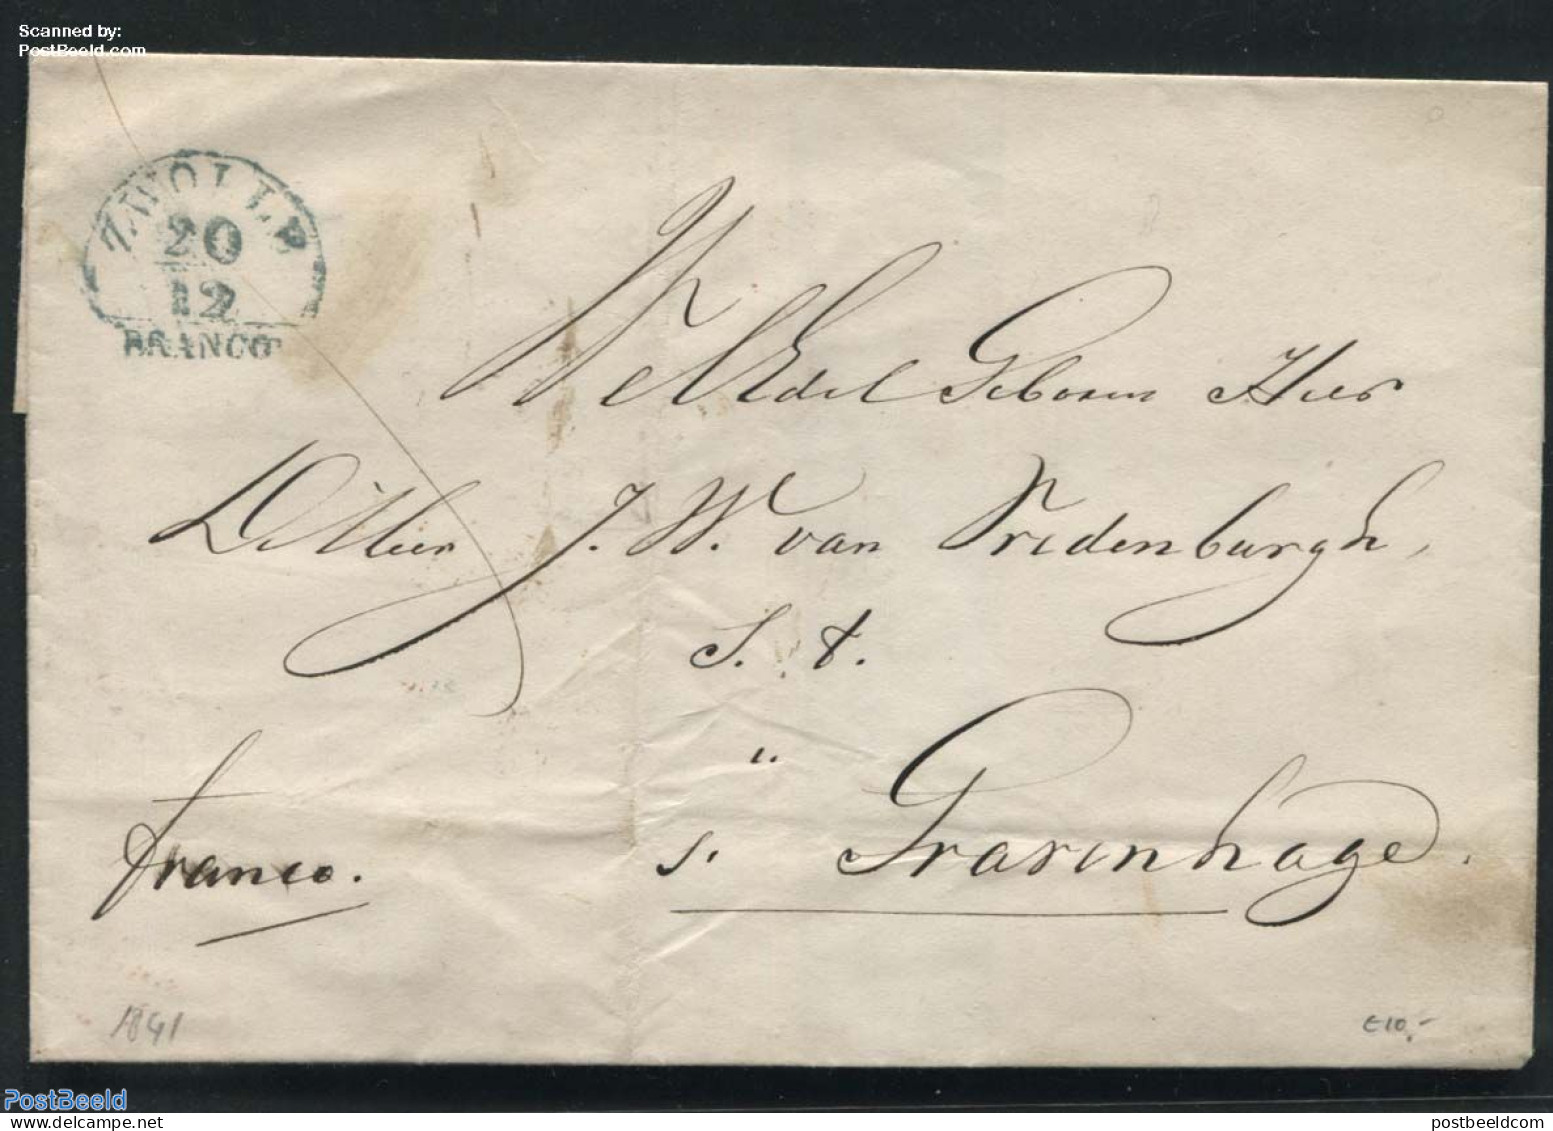 Scanned by:
PostBeeld.com
ZWOLLE
20
12
FRANCO
Wel Edel Geboren Heer
De Heer J. W. van Vredenburgh,
s. t.
"
s. Gravenhage.
franco.
1841
€10,-
PostBeeld
postbeeldcom